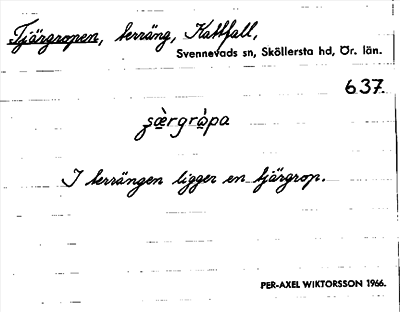 Tjärgropen, terräng, Kattfall,
Svennevads sn, Sköllersta hd, Ör. län.
637.
I terrängen ligger en tjärgrop.
PER-AXEL WIKTORSSON 1966.